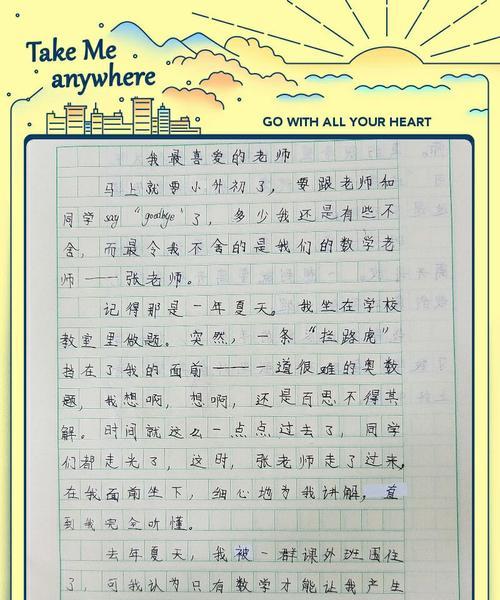 Take Me
anywhere
GO WITH ALL YOUR HEART
我最喜爱的老师
马上就要小升初了，要跟老师和
同学say“goodbye”了，多少我还是有些不
舍，而最令我不舍的是我们的数学老
师——张老师。
记得那是一年夏天。我坐在学校
教室里做题。突然，一条“拦路虎”
挡在了我的面前——一道很难的奥数
题，我想啊，想啊，还是百思不得其
解。时间就这么一点点过去了，同学
们都走光了，这时，张老师走了过来，
在我面前坐下，细心地为我讲解，直
到我完全听懂。
去年夏天，我被一群课外班围住
了，可我认为只有数学才能让我产生